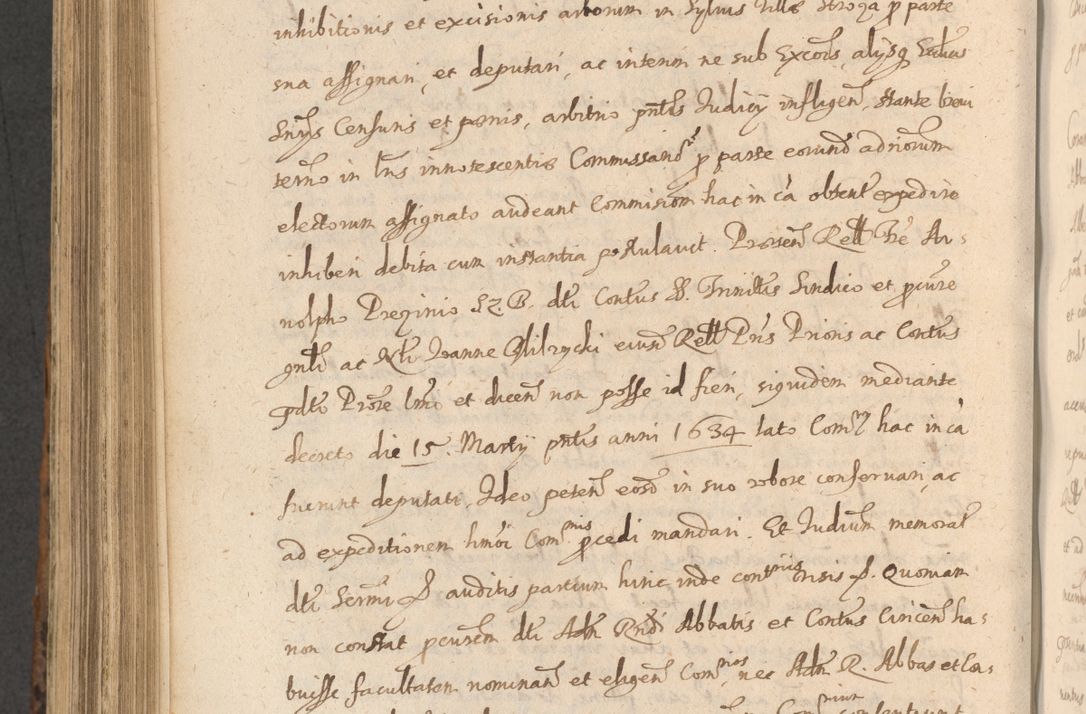 inhibitionis et excisionis arborum in Sylvis Villæ Stroza p parte
sua assignari, et deputari, ac interim ne sub Excoīs, alijsq Ecclicis
Snijs Censuris et pœnis, arbitrio pñtis Judicij infligeñ, stante brevi
termo in lris innotescentis Commissario p parte eorund adriorum
electorum assignato audeant Commisioñ hac in ca obtent expedire
inhiberi debita cum instantia postulavit. Præseñ Rell Fre Ar=
nolpho Preginio Sz. B. dti Contus S. Trinitis Sindico et pcure
gnli ac Xti Joanne Wilzycki eiusd Rell Pris Prioris ac Contus
pdto Prore lmo et diceñ non posse id fieri, siquidem mediante
decreto die 15. Martij pñtis anni 1634 lato Comrij hac in ca
fuerunt deputati, Ideo peteñ eosd in suo robore conservari, ac
ad expeditionem hmoi Commis pcedi mandari. Et Judium memorat
dti Sermi P auditis partium hinc inde controrsis P. Quoniam
non constat pcurem dti Adm Rndi Abbatis et Contus Ciriceñ ha=
buisse facultatem nominañ et eligeñ Comrios nec Adm R. Abbas et Con=